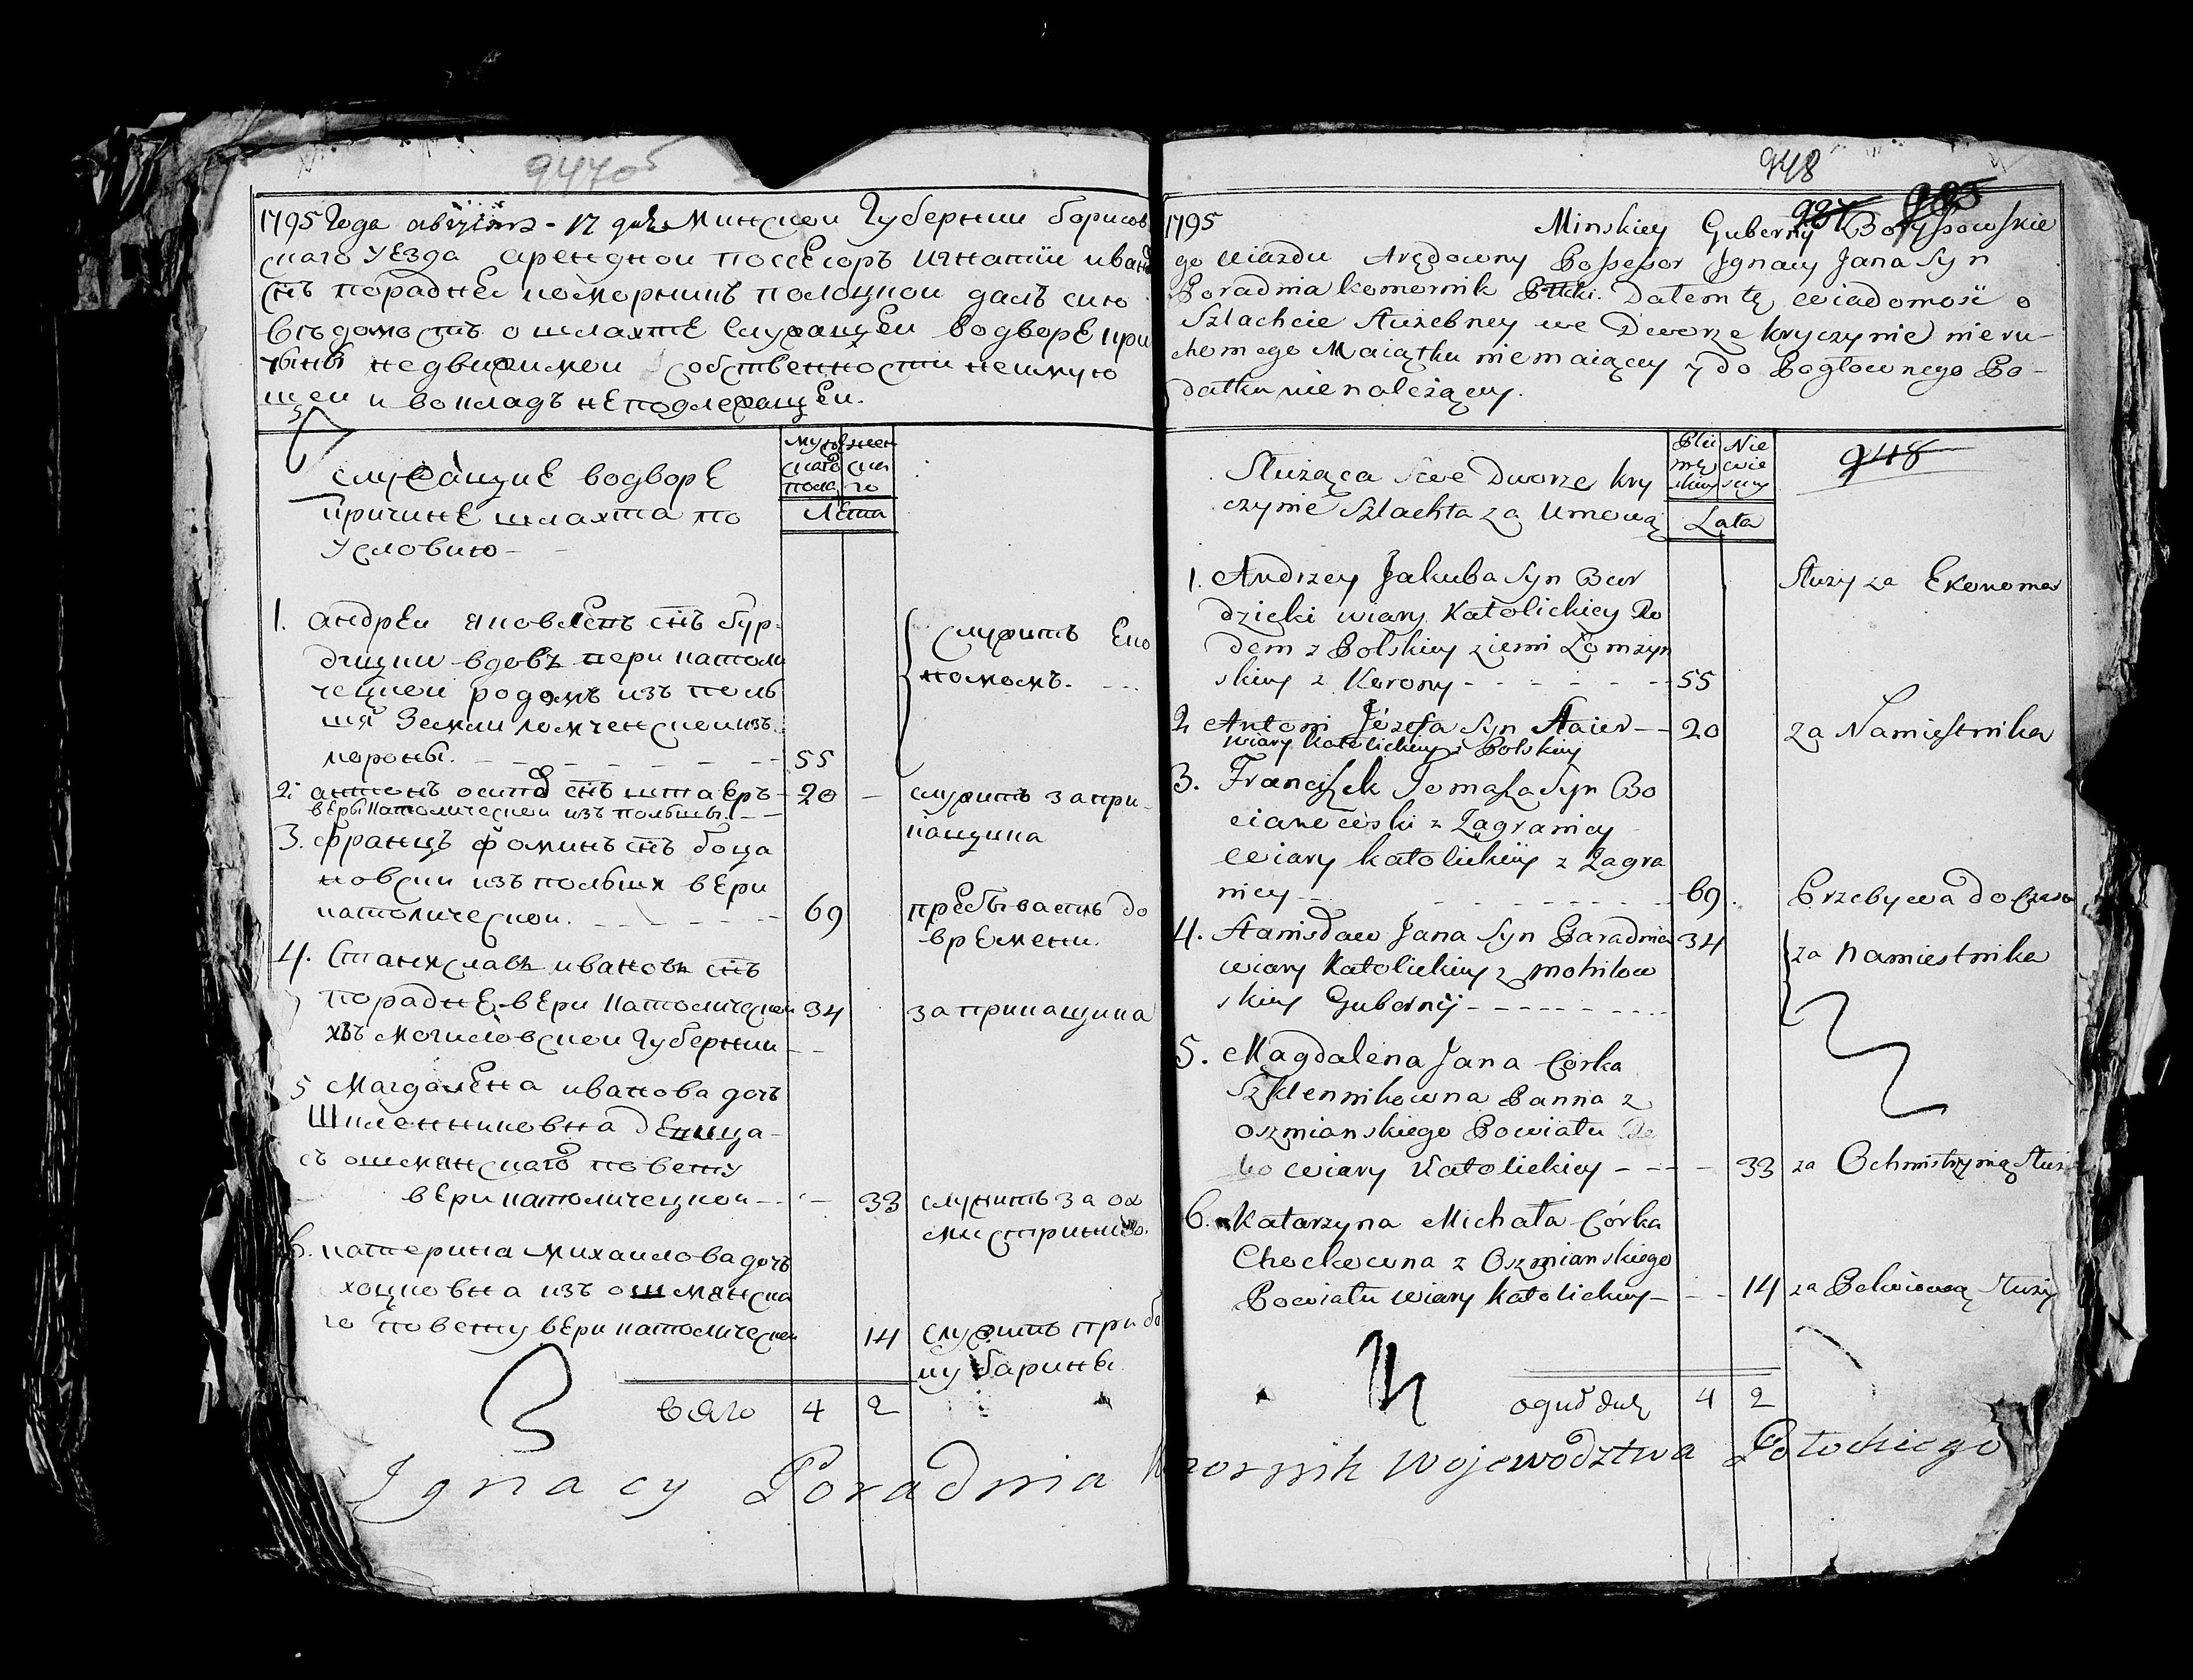 947об
1795 года августа 17 дня Минской Губернии борисов
скаго уезда арендной поссесоръ игнатiй иванъ
снъ порадне коморникъ полоцкой далъ сию
ведомость о шляхте служащеи водворе кри
чыны недвижимои собственности неимую
щеи и во кладъ неподлежащеи.
служащие водворе
кричине шляхта по
условию
мужескаго пола
женскаго
Лета
1. андреи яковлевъ снъ бур
дзицки вдовъ вери католи
чецкои родомъ изъ поль
шя Земли ломченскои изъ
короны. 55
служитъ Еко
номомъ.
2. антонъ осипо снъ штаеръ 20
веры католическои изъ полшы.
служитъ за при
кащика
3. францъ фоминъ снъ боця
новски изъ польши вери
католическои. 69
пребываетъ до
времени.
4. Станиславъ ивановъ снъ
порадне вери католическои 34
изъ могиловскои Губернии
за прикащика
5 Магдалена иванова дочъ
Шкленниковна девица
съ ошмянскаго повету
вери католичецкои 33
служитъ за ох
мистриню.
6. катерина михаилова дочъ
хоцковна изъ ошмянска
го повету вери католическои 14
служитъ при бо
ку барины
всяго 4 2
948
1795 Minskiey Gubernij Borysowskie
go uiazdu Arędowny Possessor Jgnacy Jana Syn
Poradnia komornik Pttcki. Dałem tę wiadomość o
Szlachcie Służebney we Dworze kryczynie nieru-
chomego Maiątku niemaiącey y do Pogłownego Po-
datku nienależącey.
Służąca we Dworze kry
czynie Szlachta za Umową
Płci
męskiey
Niewieściey
Lata
948
1. Andrzey Jakuba Syn Bur
dzicki wiary Katolickiey Ro
dem z Polskiey ziemi Łomżyń
skiey z Korony 55
Służy za Ekonoma
2 Antoni Józefa Syn Staier 20
wiary Katolickiey z Polskiey
za Namiestnika
3. Franciszek Tomasza Syn Bo
cianowski z Zagranicy
wiary katolickiey z Zagra
nicy 69
Przebywa do Czasu
4. Stanisław Jana Syn Paradnia 34
wiary Katolickiey z mohilow
skiey Gubernij
za Namiestnika
5. Magdalena Jana Córka
Szklennikowna Panna z
Oszmianskiego Powiatu
wiary Katolickiey 33
za Ochmistrzynią Służy
6. Katarzyna Michała Córka
Chockowna z Oszmianskiego
Powiatu wiary katolickiey 14
za Pokoiową Służy
oguł dusz 4 2
Ignacy Poradnia Komornik Wojewodztwa Połockiego